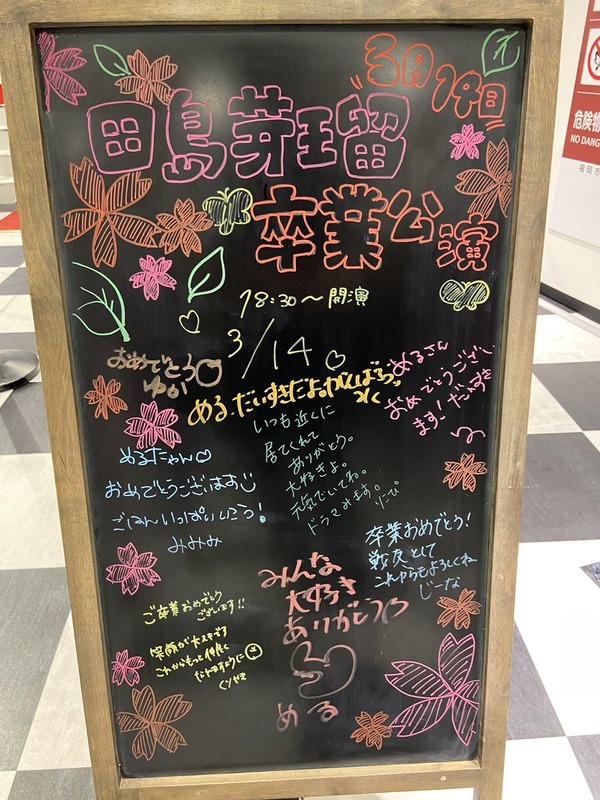 3月14日
田島芽瑠
卒業公演
18:30〜開演
3/14
おめでとう
ゆい
める、だいすきだよ。がんばろっ
めるさん
おめでとうござい
ます!だいすき
いつも近くに
居てくれて
ありがとう。
大好きよ。
元気でいてね。
ドラマみます。
めるたゃん♡
おめでとうございます
ごはんいっぱいいこう!
みみみ
卒業おめでとう!
戦友として
これからもよろしくね
じーな
ご卒業おめでとう
ございます!!
笑顔が大スキです
これからもっと仲良く
なれますように
みんな
大好き
ありがとう
める
危険物
NO DANG
福岡市